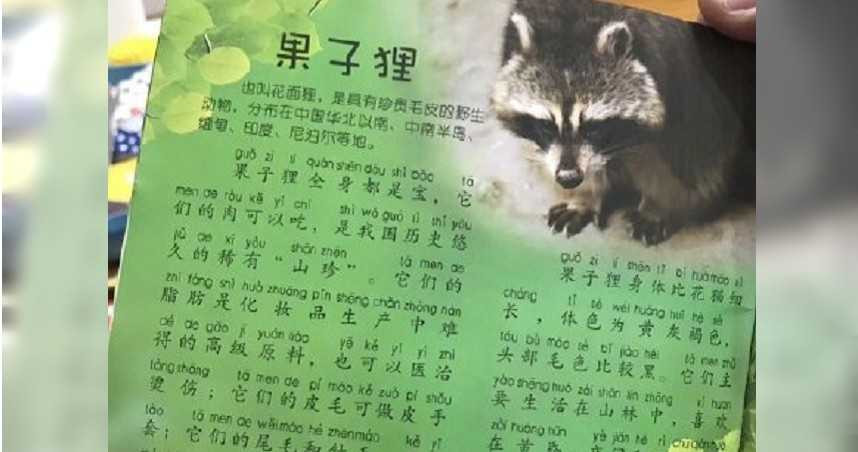 果子狸
也叫花面狸，是具有珍贵毛皮的野生
动物，分布在中国华北以南、中南半岛、
缅甸、印度、尼泊尔等地。
guǒ zi lí quán shēn dōu shì bǎo tā
果子狸全身都是宝，它
men de ròu kě yǐ chī shì wǒ guó lì shǐ yōu
们的肉可以吃，是我国历史悠
jiǔ de xī yǒu shān zhēn tā men de
久的稀有“山珍”。它们的
zhī fáng shì huà zhuāng pǐn shēng chǎn zhōng nán
脂肪是化妆品生产中难
dé de gāo jí yuán liào yě kě yǐ yī zhì
得的高级原料，也可以医治
tàng shāng tā men de pí máo kě zuò pí shǒu
烫伤；它们的皮毛可做皮手
tào tā men de wěi máo hé zhēn máo kě yǐ
套；它们的尾毛和针毛
guǒ zi lí shēn tǐ bǐ huā māo xì
果子狸身体比花猫细
cháng tǐ sè wéi huáng huī hè sè
长，体色为黄灰褐色，
tóu bù máo sè bǐ jiào hēi tā men zhǔ
头部毛色比较黑。它们主
yào shēng huó zài shān lín zhōng xǐ huan
要生活在山林中，喜欢
zài huáng hūn yè jiān hé rì chū qián
在黄昏、夜间